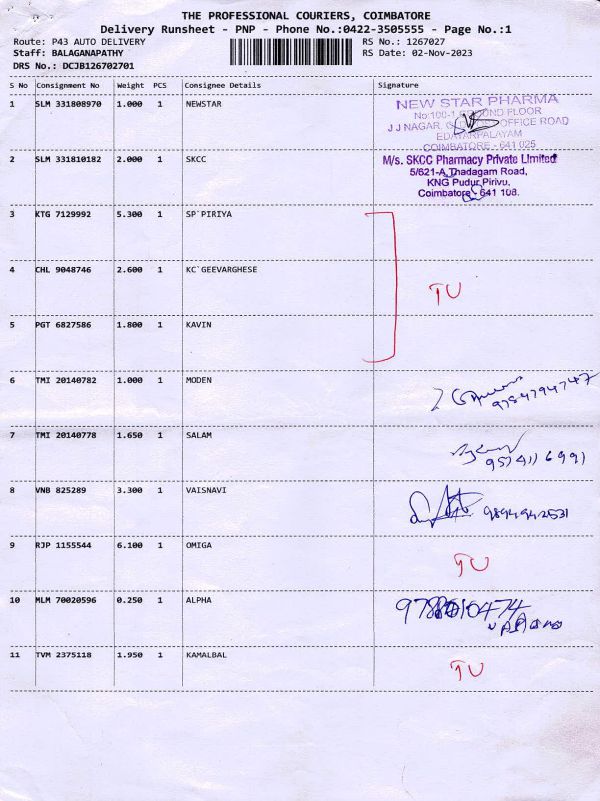 THE PROFESSIONAL COURIERS, COIMBATORE
Delivery Runsheet - PNP - Phone No.:0422-3505555 - Page No.:1
Route: P43 AUTO DELIVERY RS No.: 1267027
Staff: BALAGANAPATHY RS Date: 02-Nov-2023
DRS No.: DCJB126702701
S No Consignment No Weight PCS Consignee Details Signature
1 SLM 331808970 1.000 1 NEWSTAR
NEW STAR PHARMA
No:100-1 SECOND FLOOR
J J NAGAR, OFFICE ROAD
EDAYARPALAYAM
COIMBATORE - 641 025
2 SLM 331810182 2.000 1 SKCC
M/s. SKCC Pharmacy Private Limited
5/621-A, Thadagam Road,
KNG Pudur Pirivu,
Coimbatore - 641 108.
3 KTG 7129992 5.300 1 SP`PIRIYA
4 CHL 9048746 2.600 1 KC`GEEVARGHESE
TU
5 PGT 6827586 1.800 1 KAVIN
6 TMI 20140782 1.000 1 MODEN
9784794747
7 TMI 20140778 1.650 1 SALAM
8 VNB 825289 3.300 1 VAISNAVI
9894942531
9 RJP 1155544 6.100 1 OMIGA
TU
10 MLM 70020596 0.250 1 ALPHA
11 TVM 2375118 1.950 1 KAMALBAL
TU